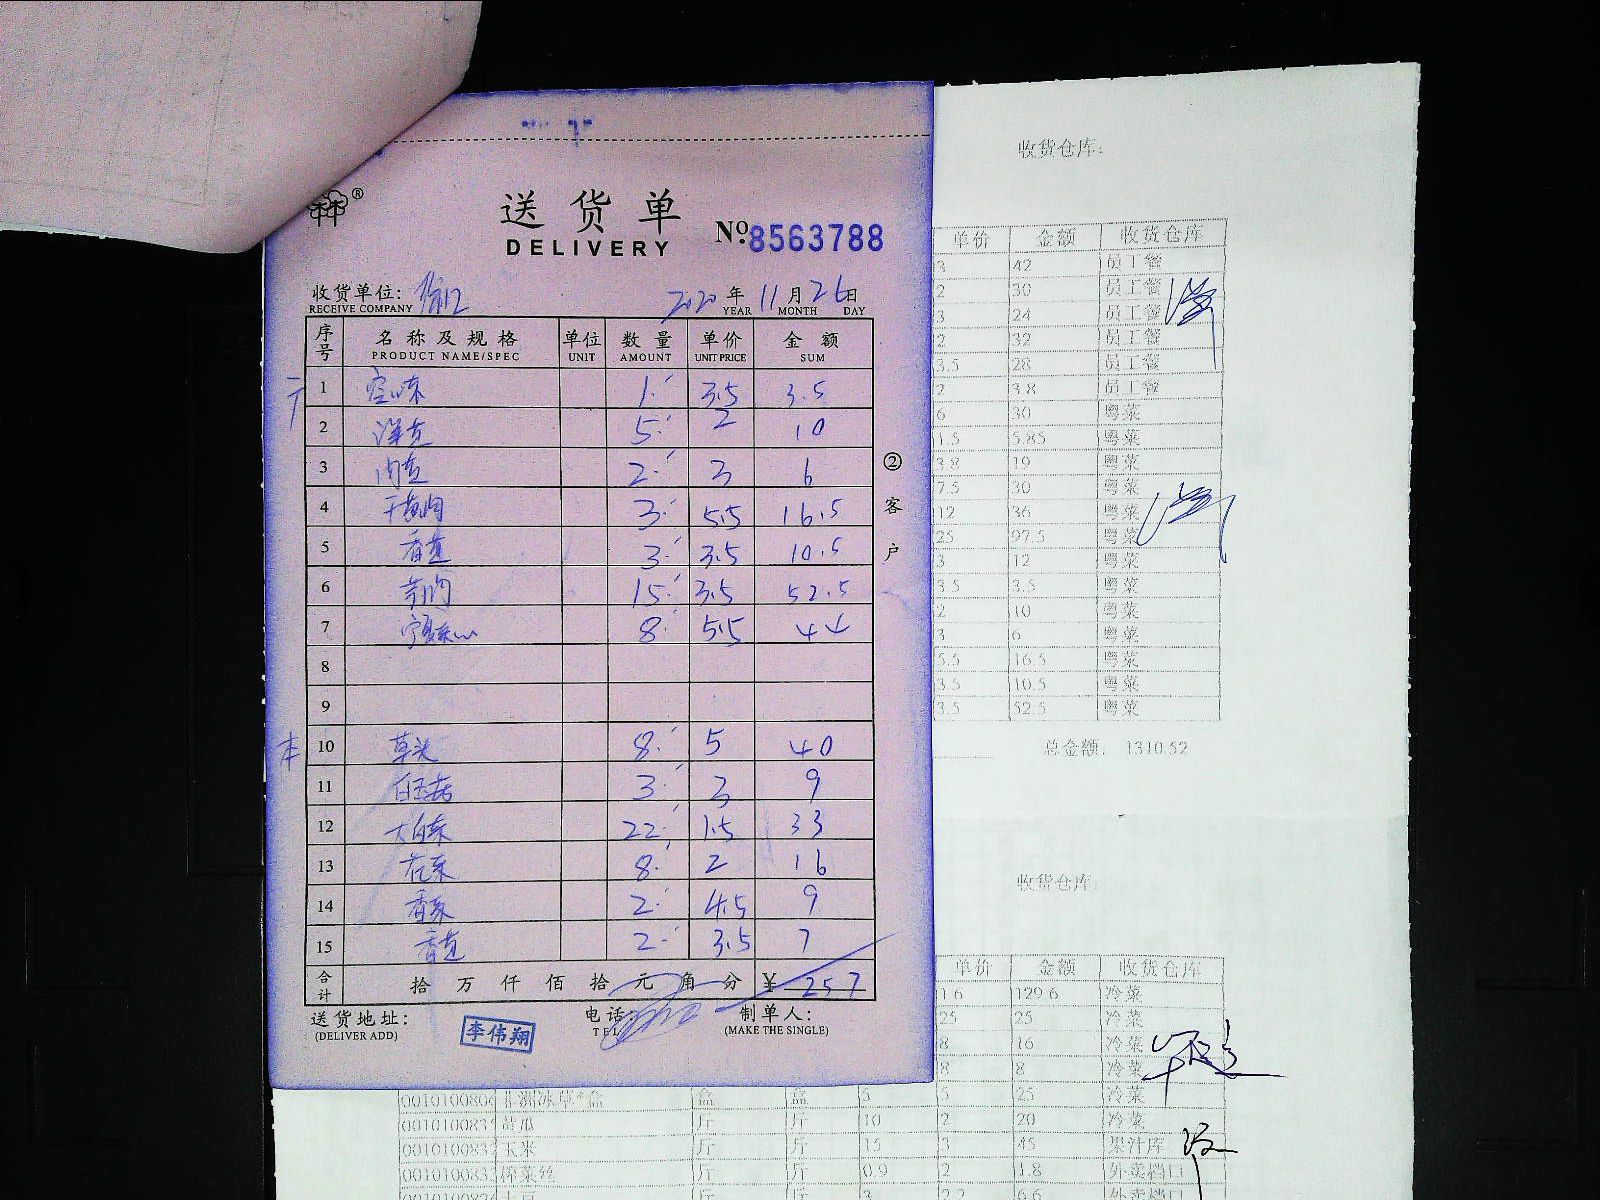 送货单
DELIVERY
No. 8563788
收货单位:
RECEIVE COMPANY
2020 年 11 月 26 日
YEAR MONTH DAY
序号 名称及规格 单位 数量 单价 金额
PRODUCT NAME/SPEC UNIT AMOUNT UNIT PRICE SUM
1 1 3.5 3.5
2 洋芫 5 2 10
3 2 3 6
4 3 5.5 16.5
5 香芫 3 3.5 10.5
6 15 3.5 52.5
7 8 5.5 44
8
9
本 10 草头 8 5 40
11 白玉菇 3 3 9
12 大白菜 22 1.5 33
13 花菜 8 2 16
14 香菜 2 4.5 9
15 香芫 2 3.5 7
合计 拾 万 仟 佰 拾 元 角 分 ¥ 257
送货地址:
(DELIVER ADD)
李伟翔
电话:
TEL
制单人:
(MAKE THE SINGLE)
② 客户
收货仓库:
单价 金额 收货仓库
3 42 员工餐
2 30 员工餐
3 24 员工餐
2 32 员工餐
3.5 28 员工餐
2 3.8 员工餐
6 30 粤菜
1.5 5.85 粤菜
3.8 19 粤菜
7.5 30 粤菜
12 36 粤菜
25 97.5 粤菜
3 12 粤菜
3.5 3.5 粤菜
2 10 粤菜
3 6 粤菜
5.5 16.5 粤菜
3.5 10.5 粤菜
3.5 52.5 粤菜
总金额: 1310.52
收货仓库:
单价 金额 收货仓库
1.6 129.6 冷菜
25 25 冷菜
8 16 冷菜
8 8 冷菜
盒 盒 5 5 25 冷菜
斤 斤 10 2 20 冷菜
玉米 斤 斤 15 3 45 果汁库
榨菜丝 斤 斤 0.9 2 1.8 外卖档口
土豆 斤 斤 3 2.2 6.6 外卖档口